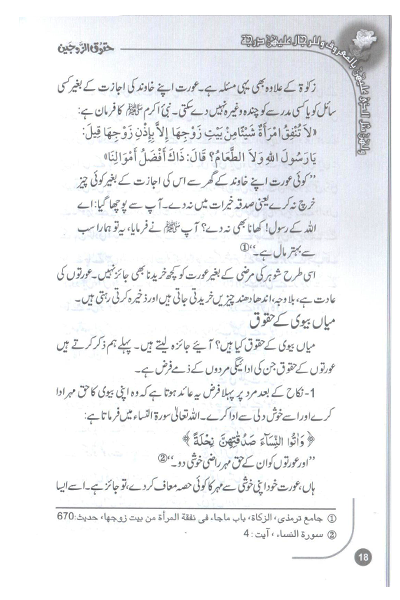 حقوق الزوجین
بالمعروف وللرجال علیهن درجة
زکوٰۃ کے علاوہ بھی یہی مسئلہ ہے۔ عورت اپنے خاوند کی اجازت کے بغیر کسی
سائل کو یا کسی مدرسے کو چندہ وغیرہ نہیں دے سکتی۔ نبی اکرم ﷺ کا فرمان ہے:
«لَا تُنْفِقُ امْرَأَةٌ شَيْئًا مِنْ بَيْتِ زَوْجِهَا إِلاَّ بِإِذْنِ زَوْجِهَا قِيلَ:
يَا رَسُولَ اللهِ وَلَا الطَّعَامُ؟ قَالَ: ذَاكَ أَفْضَلُ أَمْوَالِنَا»
’’کوئی عورت اپنے خاوند کے گھر سے اس کی اجازت کے بغیر کوئی چیز
خرچ نہ کرے یعنی صدقہ خیرات میں نہ دے۔ آپ سے پوچھا گیا: اے
اللہ کے رسول! کھانا بھی نہ دے؟ آپ ﷺ نے فرمایا، یہ تو ہمارا سب
سے بہتر مال ہے۔‘‘①
اسی طرح شوہر کی مرضی کے بغیر عورت کو کچھ خریدنا بھی جائز نہیں۔ عورتوں کی
عادت ہے، بلاوجہ، اندھا دھند چیزیں خریدتی جاتی ہیں اور ذخیرہ کرتی رہتی ہیں۔
میاں بیوی کے حقوق
میاں بیوی کے حقوق کیا ہیں؟ آیئے جائزہ لیتے ہیں۔ پہلے ہم ذکر کرتے ہیں
عورتوں کے حقوق جن کی ادائیگی مردوں کے ذمے فرض ہے۔
1- نکاح کے بعد مرد پر پہلا فرض یہ عائد ہوتا ہے کہ وہ اپنی بیوی کا حق مہر ادا
کرے اور اسے خوش دلی سے ادا کرے۔ اللہ تعالیٰ سورۃ النساء میں فرماتا ہے:
﴿ وَاٰتُوا النِّسَآءَ صَدُقٰتِهِنَّ نِحْلَةً ﴾
’’اور عورتوں کو ان کے حق مہر راضی خوشی دو۔‘‘②
ہاں، عورت خود اپنی خوشی سے مہر کا کوئی حصہ معاف کر دے، تو جائز ہے۔ اسے ایسا
① جامع ترمذی، الزکاة، باب ماجاء فی نفقة المرأة من بیت زوجها، حدیث: 670
② سورة النساء، آیت: 4
18